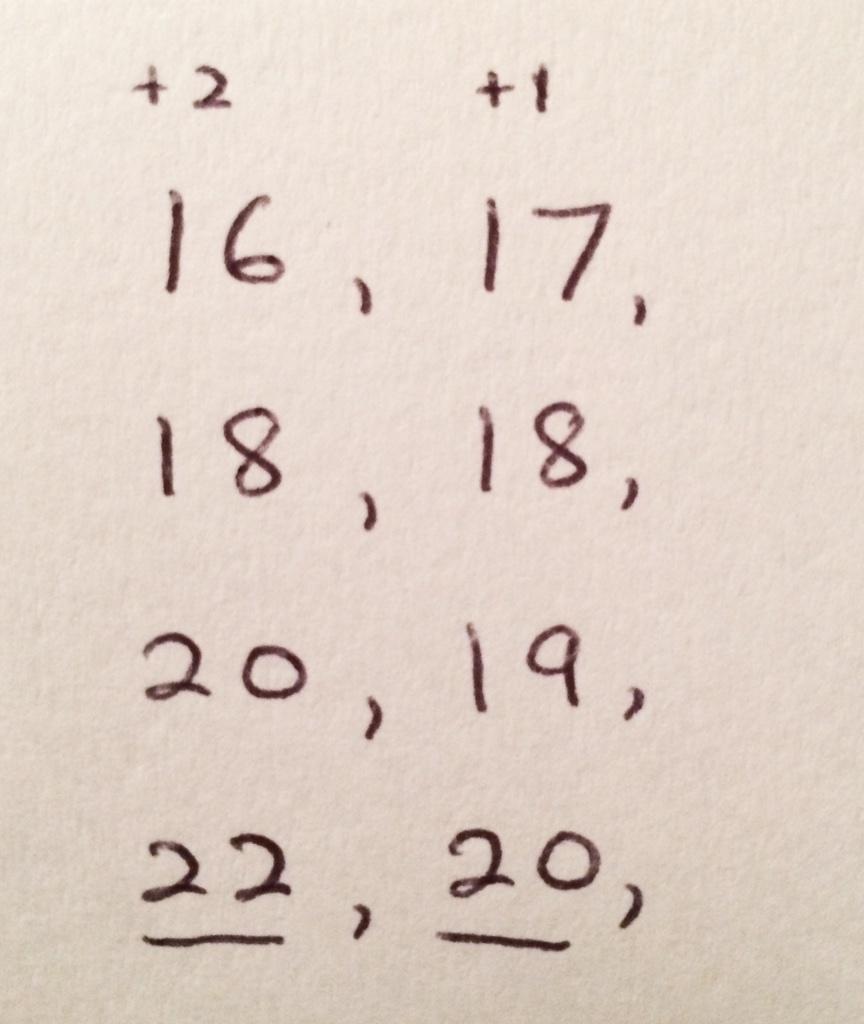 +2 +1
16, 17,
18, 18,
20, 19,
22, 20,